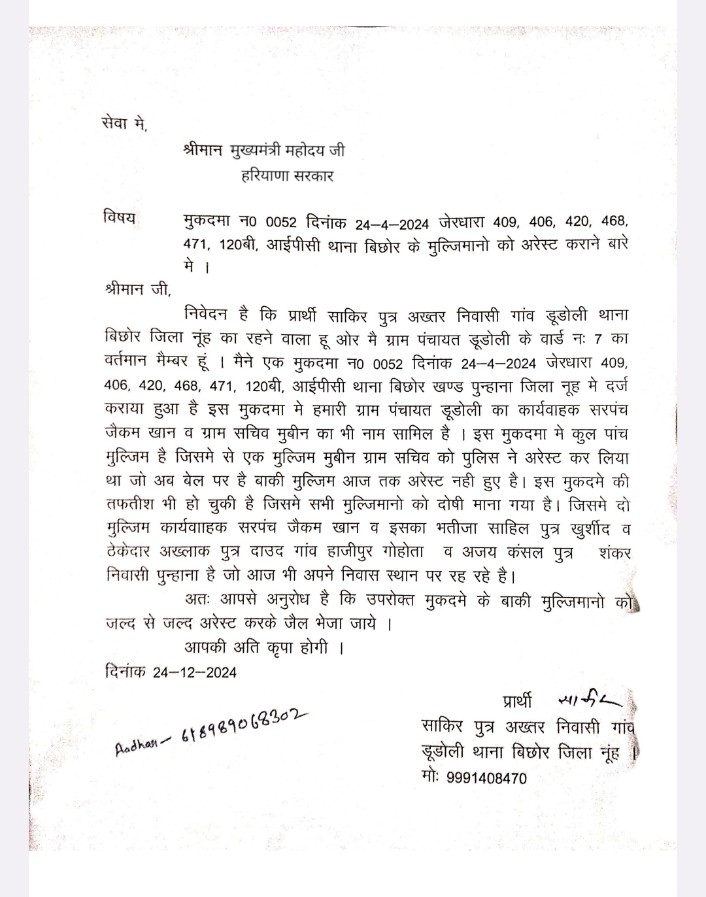 सेवा मे,
श्रीमान मुख्यमंत्री महोदय जी
हरियाणा सरकार
विषय मुकदमा न0 0052 दिनांक 24-4-2024 जेरधारा 409, 406, 420, 468,
471, 120बी, आईपीसी थाना बिछोर के मुल्जिमानो को अरेस्ट कराने बारे
मे ।
श्रीमान जी,
निवेदन है कि प्रार्थी साकिर पुत्र अख्तर निवासी गांव डूडोली थाना
बिछोर जिला नूंह का रहने वाला हू ओर मै ग्राम पंचायत डूडोली के वार्ड नः 7 का
वर्तमान मैम्बर हूं । मैने एक मुकदमा न0 0052 दिनांक 24-4-2024 जेरधारा 409,
406, 420, 468, 471, 120बी, आईपीसी थाना बिछोर खण्ड पुन्हाना जिला नूह मे दर्ज
कराया हुआ है इस मुकदमा मे हमारी ग्राम पंचायत डूडोली का कार्यवाहक सरपंच
जैकम खान व ग्राम सचिव मुबीन का भी नाम सामिल है । इस मुकदमा मे कुल पांच
मुल्जिम है जिसमे से एक मुल्जिम मुबीन ग्राम सचिव को पुलिस ने अरेस्ट कर लिया
था जो अब बेल पर है बाकी मुल्जिम आज तक अरेस्ट नही हुए है। इस मुकदमे की
तफतीश भी हो चुकी है जिसमे सभी मुल्जिमानो को दोषी माना गया है। जिसमे दो
मुल्जिम कार्यवााहक सरपंच जैकम खान व इसका भतीजा साहिल पुत्र खुर्शीद व
ठेकेदार अख्लाक पुत्र दाउद गांव हाजीपुर गोहोता व अजय कंसल पुत्र शंकर
निवासी पुन्हाना है जो आज भी अपने निवास स्थान पर रह रहे है।
अतः आपसे अनुरोध है कि उपरोक्त मुकदमे के बाकी मुल्जिमानो को
जल्द से जल्द अरेस्ट करके जैल भेजा जाये ।
आपकी अति कृपा होगी ।
दिनांक 24-12-2024
प्रार्थी साकिर
Aadhar- 618989068302
साकिर पुत्र अख्तर निवासी गांव
डूडोली थाना बिछोर जिला नूंह ।
मोः 9991408470